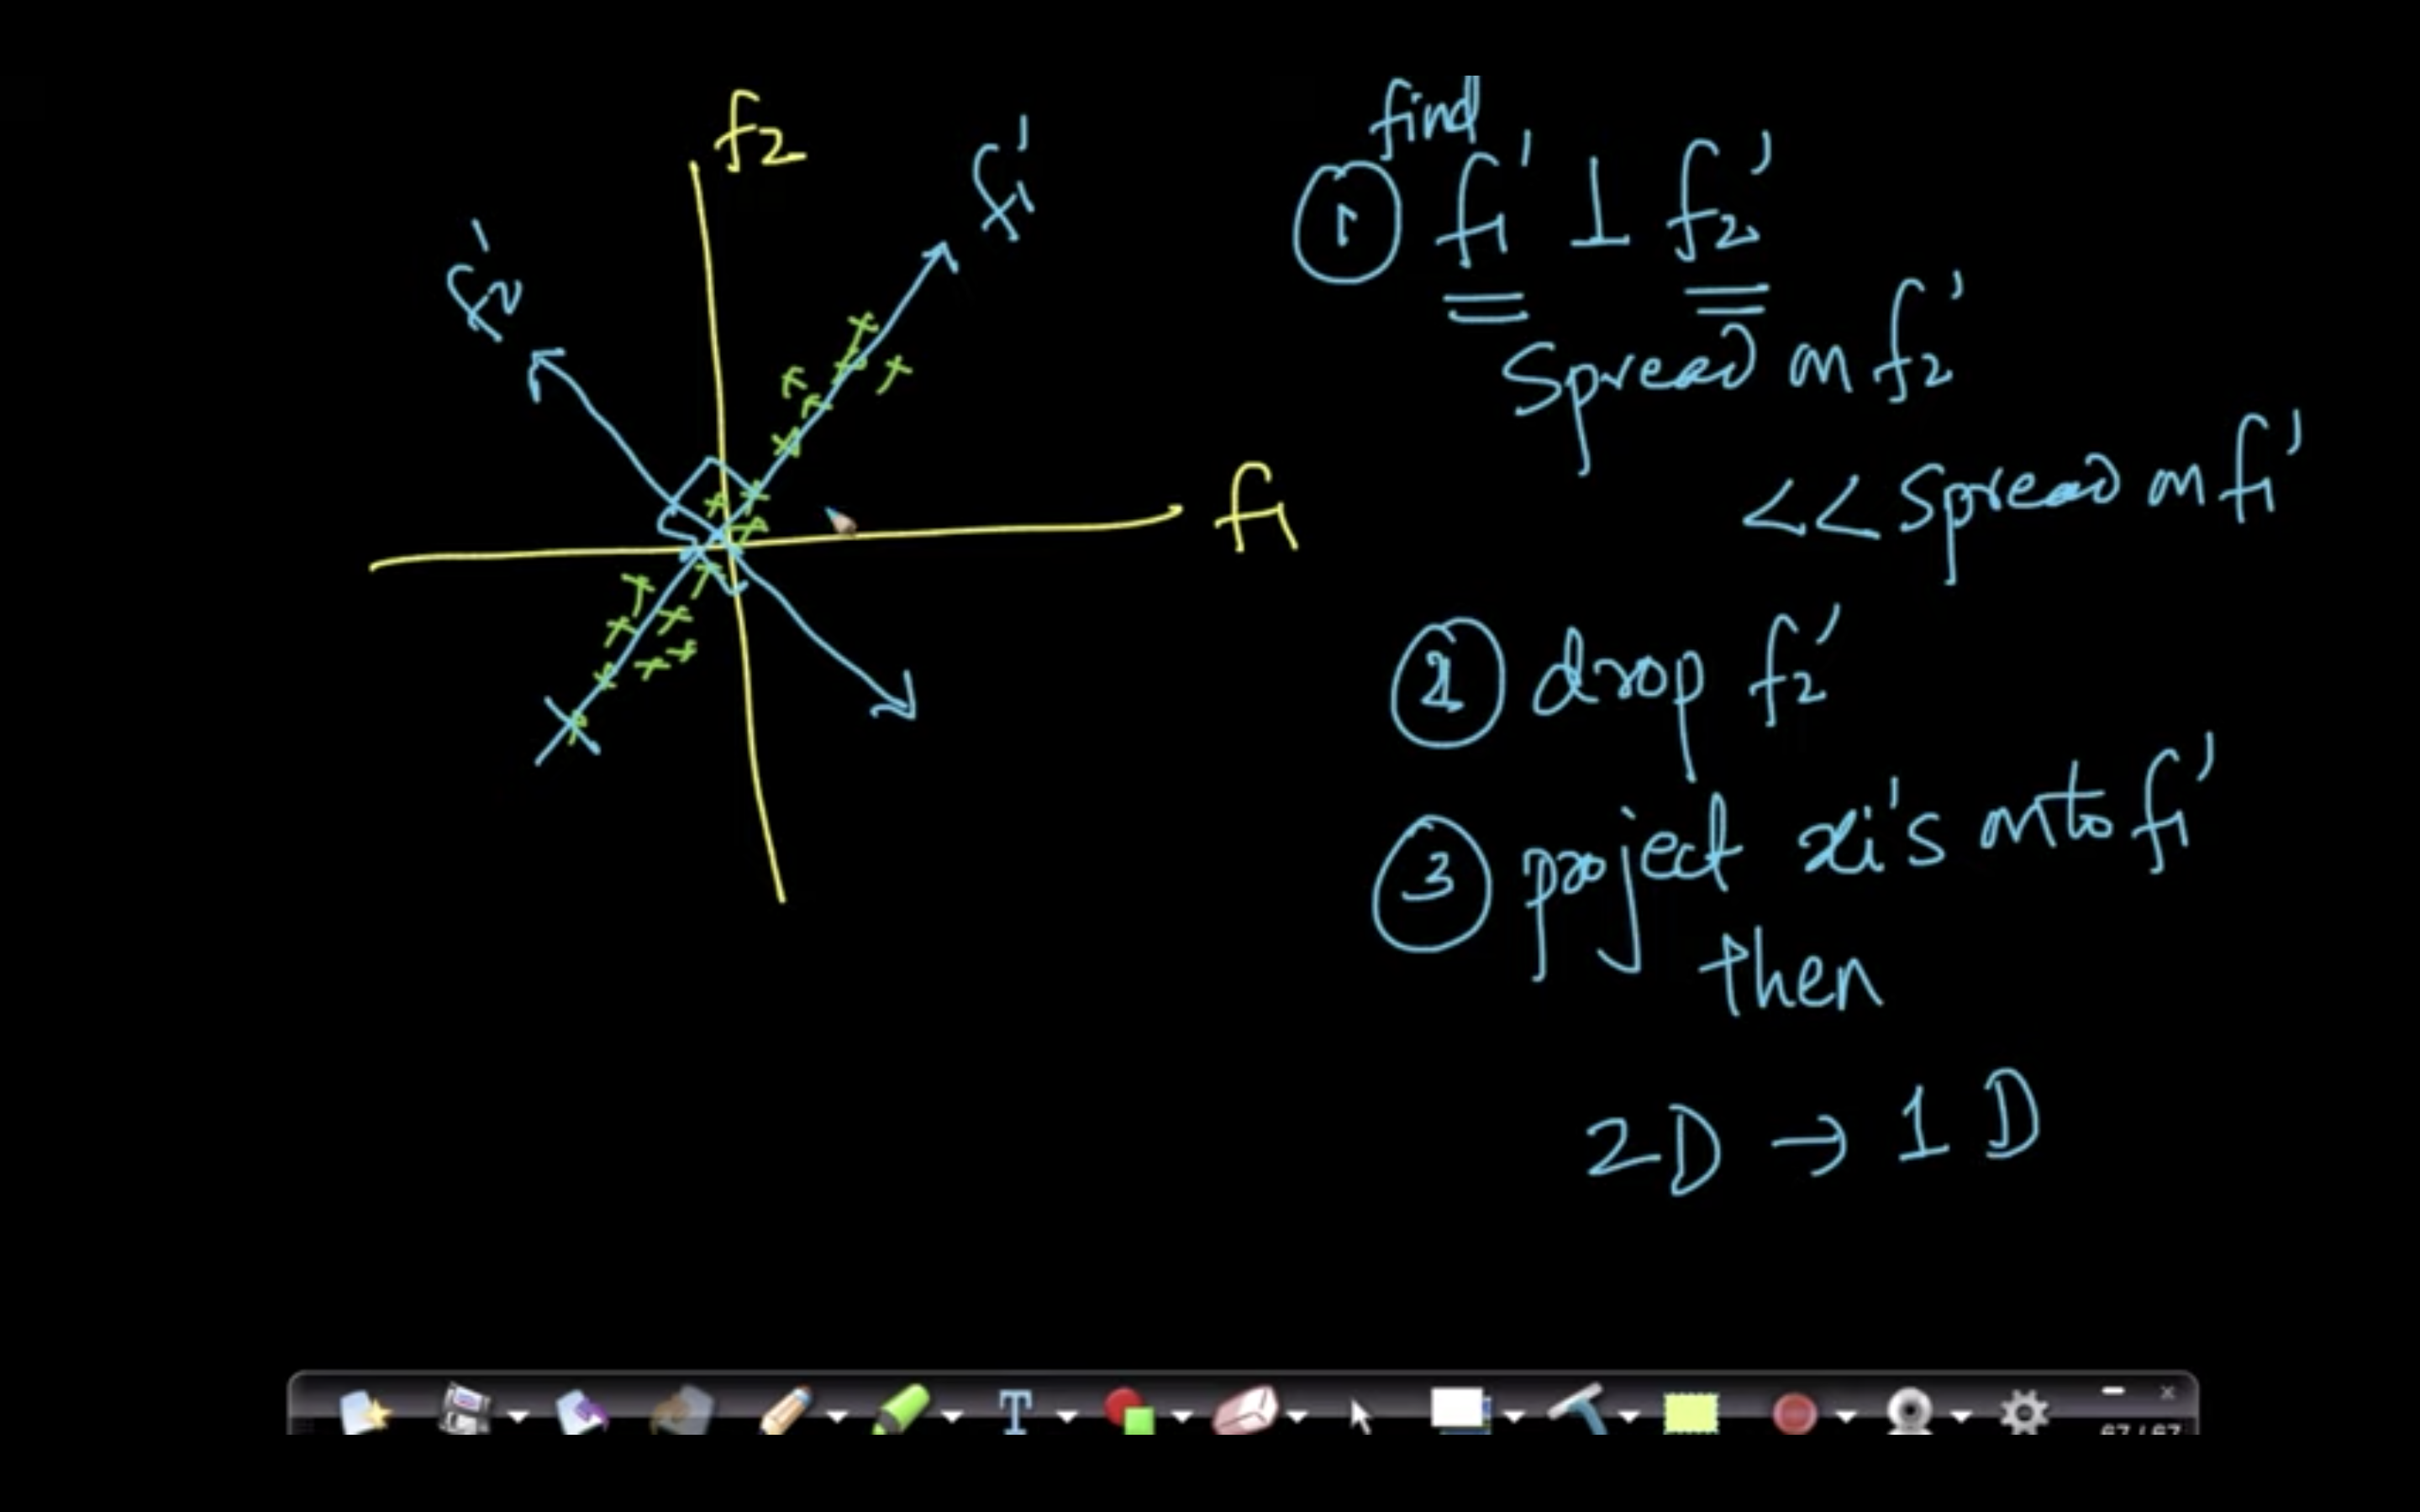 f2
f1'
f2'
f1
find
① f1' ⊥ f2'
Spread on f2'
<< Spread on f1'
② drop f2'
③ project xi's onto f1'
then
2D → 1D
T
67 / 67